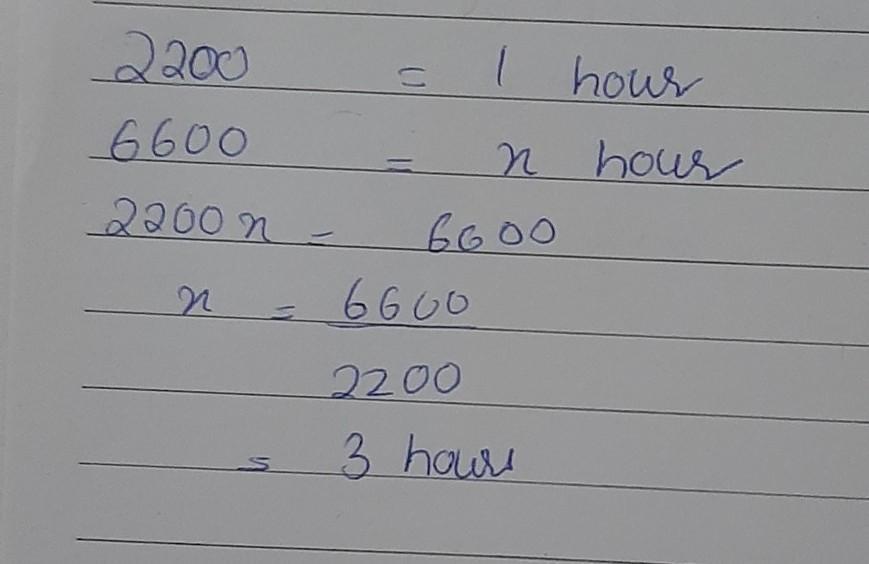 2200 = 1 hour
6600 = x hour
2200 x = 6600
x = 6600
2200
= 3 hours